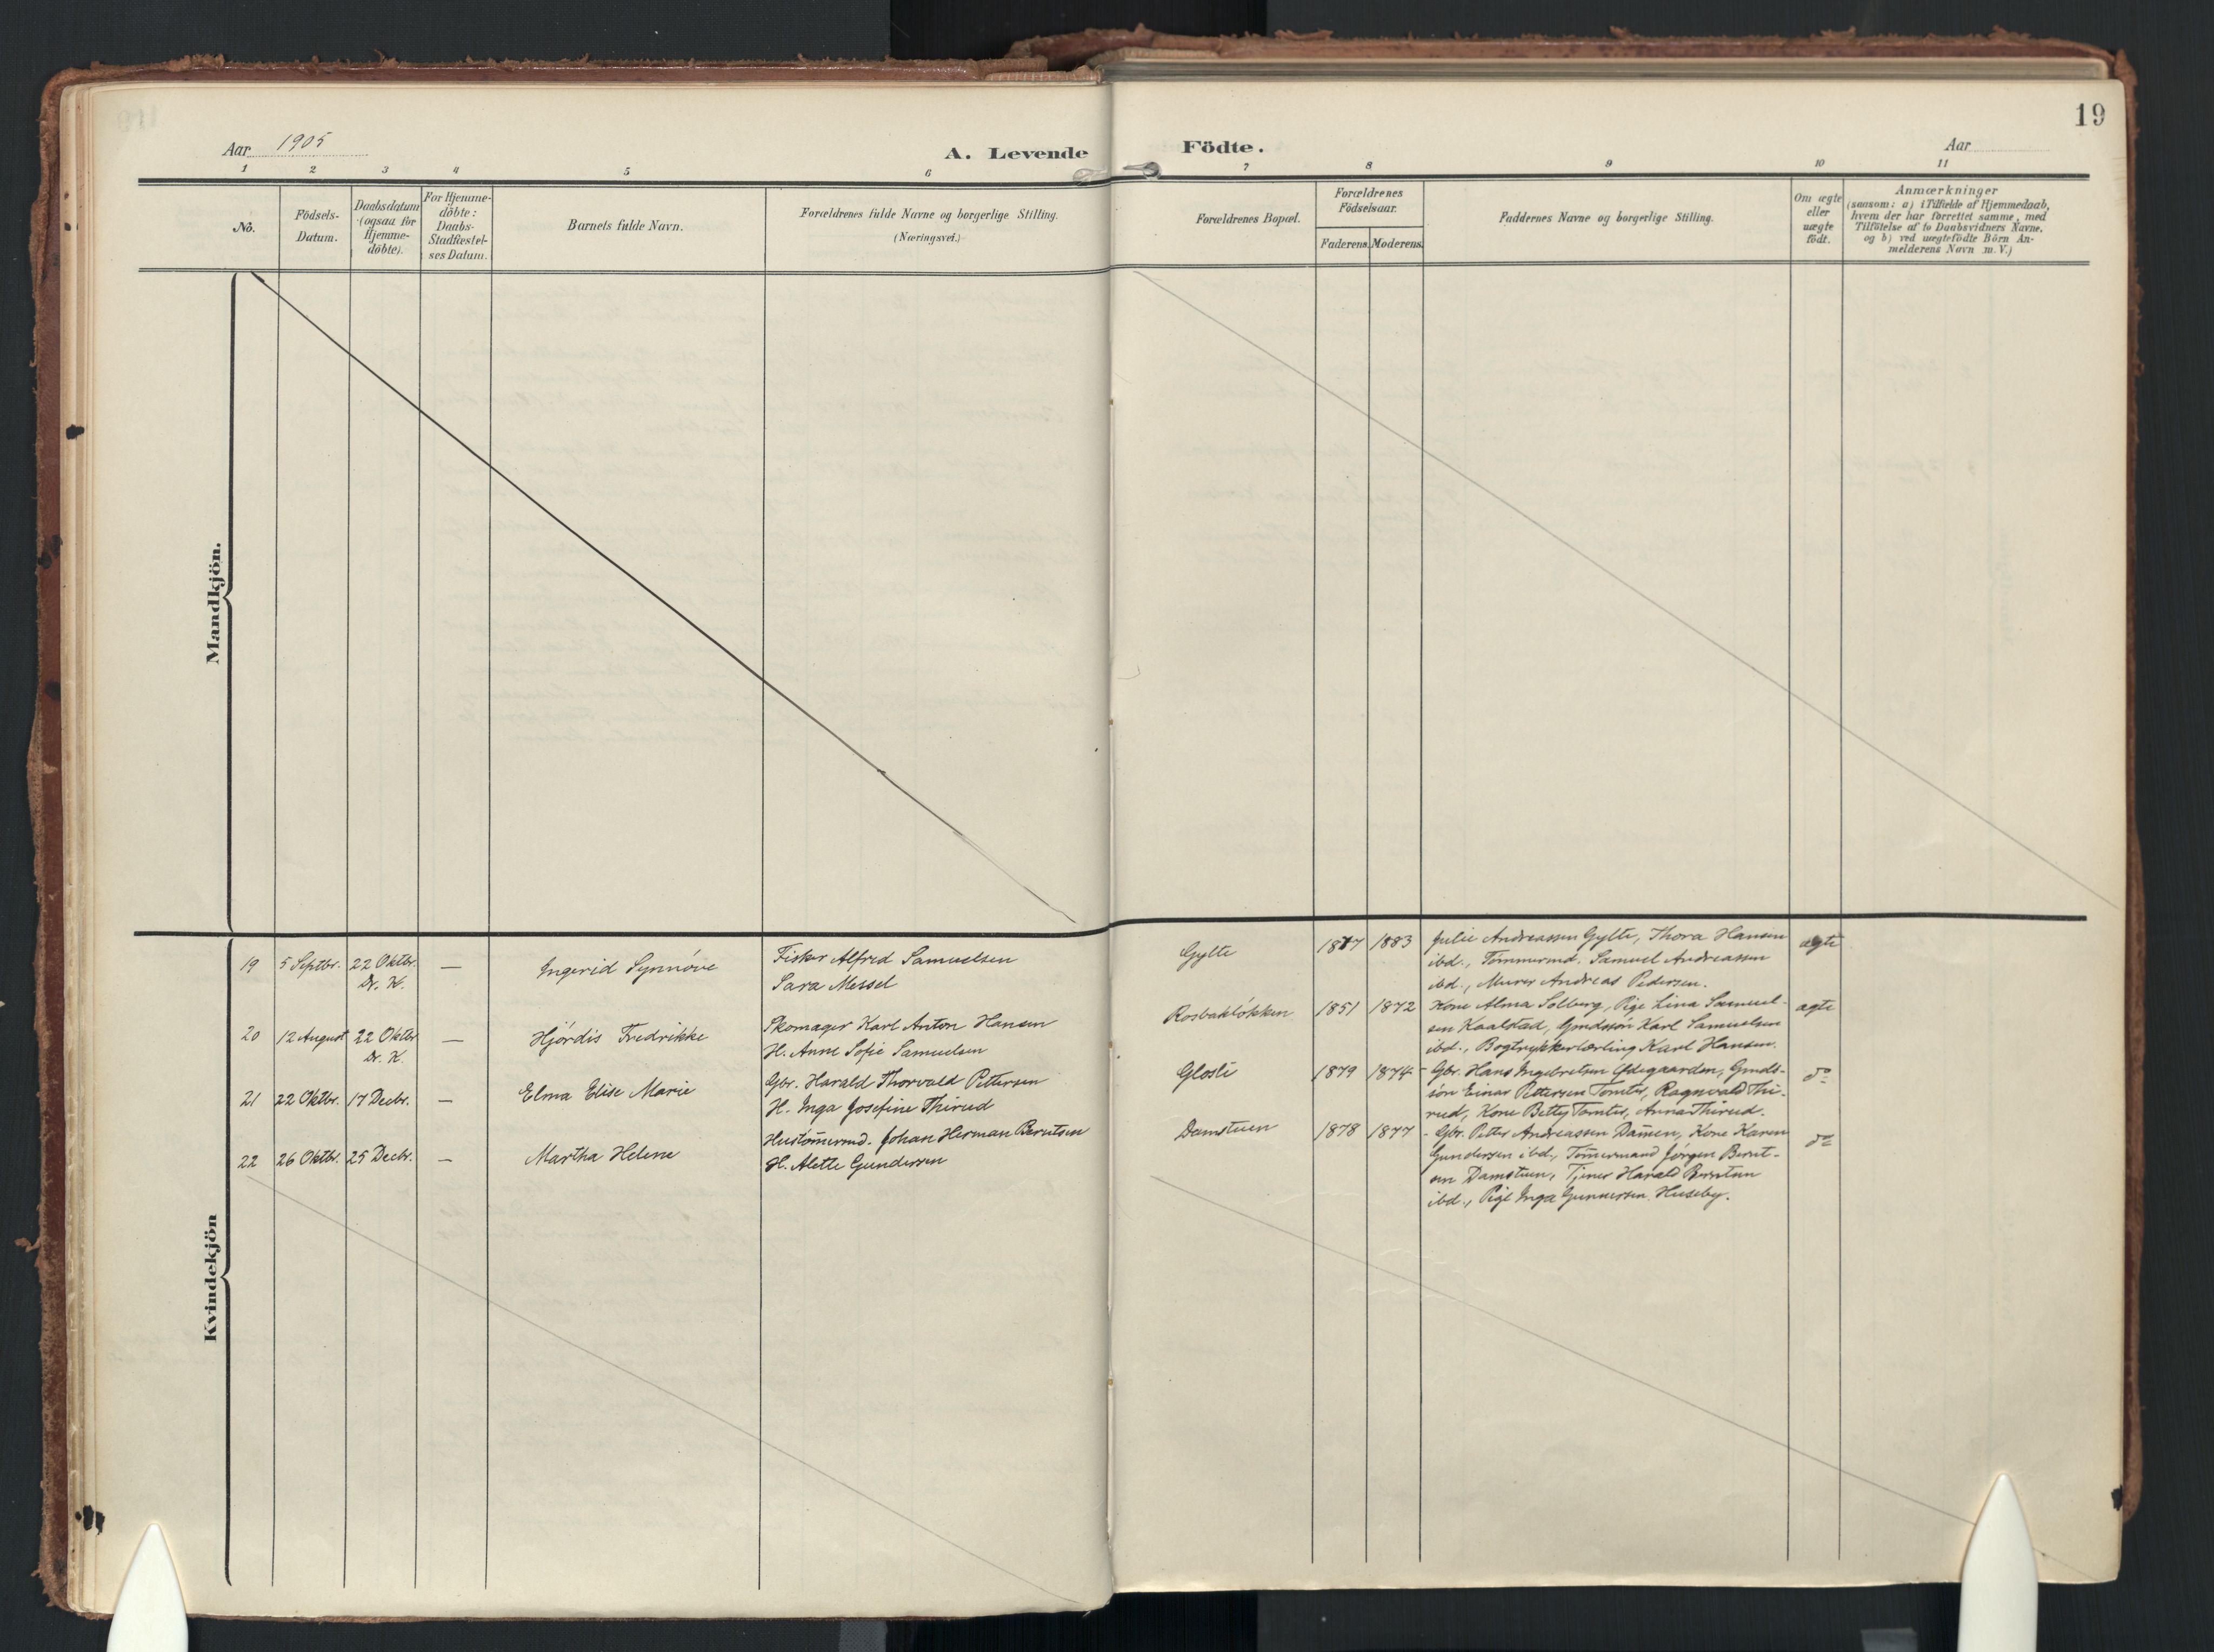 19
Aar 1905
A. Levende Födte.
Aar
1 2 3 4 5 6 7 8 9 10 11
No.
Födsels-
Datum.
Daabsdatum
(ogsaa for
Hjemme-
döbte).
For Hjemme-
döbte:
Daabs-
Stadfæstel-
ses Datum.
Barnets fulde Navn.
Forældrenes fulde Navne og borgerlige Stilling.
(Næringsvei.)
Forældrenes Bopæl.
Forældrenes
Födselsaar.
Faderens. Moderens.
Faddernes Navne og borgerlige Stilling.
Om ægte
eller
uægte
födt.
Anmærkninger
(saasom: a) i Tilfælde af Hjemmedaab,
hvem der har forrettet samme, med
Tilföielse af to Daabsvidners Navne,
og b) ved uægtefödte Börn An-
melderens Navn m. V.)
Mandkjön.
Kvindekjön
19 5 Septbr. 22 Oktbr. — Ingerid Synnöve
Dr. K.
Fisker Alfred Samuelsen
Sara Messel
Gylte 1877 1883
Julie Andreassen Gylte, Thora Hansen
ibd., Tömmermd. Samuel Andreassen
ibd., Murer Andreas Pedersen.
ægte
20 12 August 22 Oktbr — Hjördis Fredrikke
Dr. K.
Skomager Karl Anton Hansen
H. Anne Sofie Samuelsen
Rosbakløkken 1851 1872
Kone Alma Solberg, Pige Lina Samuel-
sen Kaalstad, Grmdssön Karl Samuelsen
ibd., Bogtrykkerlærling Karl Hansen.
ægte
21 22 Oktbr. 17 Decbr. — Elma Elise Marie
Gbr. Harald Thorvald Pettersen
H. Inga Josefine Thirud
Glosli 1879 1874
- Gbr. Hans Ingebretsen Ødegaarden, Grmds-
sön Einar Pettersen Tomter, Ragnvald Thi-
rud, Kone Betty Tomter, Anna Thirud.
do
22 26 Oktbr. 25 Decbr. — Martha Helene
Hustömermd. Johan Herman Berntsen
H. Alette Gundersen
Damstuen 1878 1877
- Gbr. Petter Andreassen Damen, Kone Karen
Gundersen ibd., Tömermand Jörgen Bernt-
sen Damstuen, Tjener Harald Berntsen
ibd., Pige Inga Gunnersen Huseby.
do